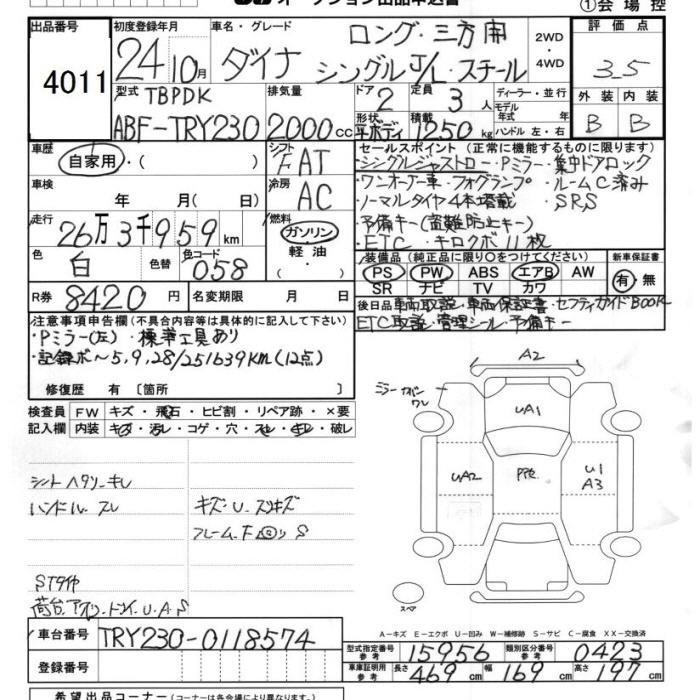 オークション出品申込書
①会場控
出品番号
4011
初度登録年月
24年10月
車名・グレード
ダイナ
ロング・三方開
シングルJ/L・スチール
2WD
・
4WD
評価点
3.5
型式 TBPDK
ABF-TRY230
排気量
2000cc
ドア
2
定員
3人
形状
平ボディ
積載
1250kg
ディーラー・並行
モデル
年式 年
ハンドル 左・右
外装 内装
B B
車歴
自家用・( )
シフト
FAT
車検
年 月( 日)
冷房
AC
走行
26万3千959km
燃料
ガソリン
・
軽油
色
白
色替
色コード
058
R券
8420円
名変期限 月 日
セールスポイント (正常に機能するものに限ります)
・シングルジャストロー・Pミラー・集中ドアロック
・ワンオーナー車・フォグランプ・ルームC済み
・ノーマルタイヤ4本搭載・SRS
・予備キー(盗難防止キー)
・ETC・キロクボ11枚
装備品 (純正品に限り○をつけてください)
PS PW ABS エアB AW
SR ナビ TV カワ
新車保証書
有・無
後日品 車両取説・車両保証書・セフティガイドBOOK
ETC取説・管理シール・予備キー
注意事項申告欄 (不具合内容等は具体的に記入して下さい)
・Pミラー(左)・標準工具あり
・記録ボ〜5,9,28/251639KM(12点)
修復歴 有 〔箇所
検査員 FW キズ・飛石・ヒビ割・リペア跡・×要
記入欄 内装 キズ・汚レ・コゲ・穴・スレ・キレ・破レ
シート ヘタリ・キレ
ハンドル スレ
キズ・U・スリキズ
フレーム・F S
STタイヤ
荷台 U.A.S
A2
ミラー カバー
ワレ
UA1
UA2
U1
A3
スペア
A-キズ E-エクボ U-凹み W-補修跡 S-サビ C-腐食 XX-交換済
車台番号 TRY230-0118574
登録番号
型式指定番号
参考
15956
類別区分番号
参考
0423
車庫証明用
参考
長さ 469cm 幅 169cm 高さ 197cm
希望出品コーナー (コーナーは各会場により異なります)